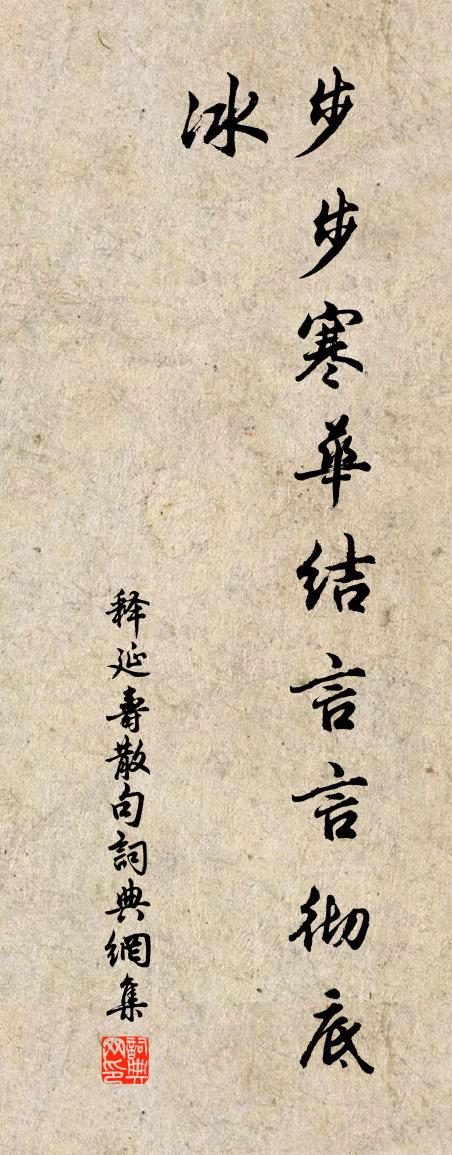 步步寒華结言言彻底
冰
释延壽散句詞典網集
詞典网印